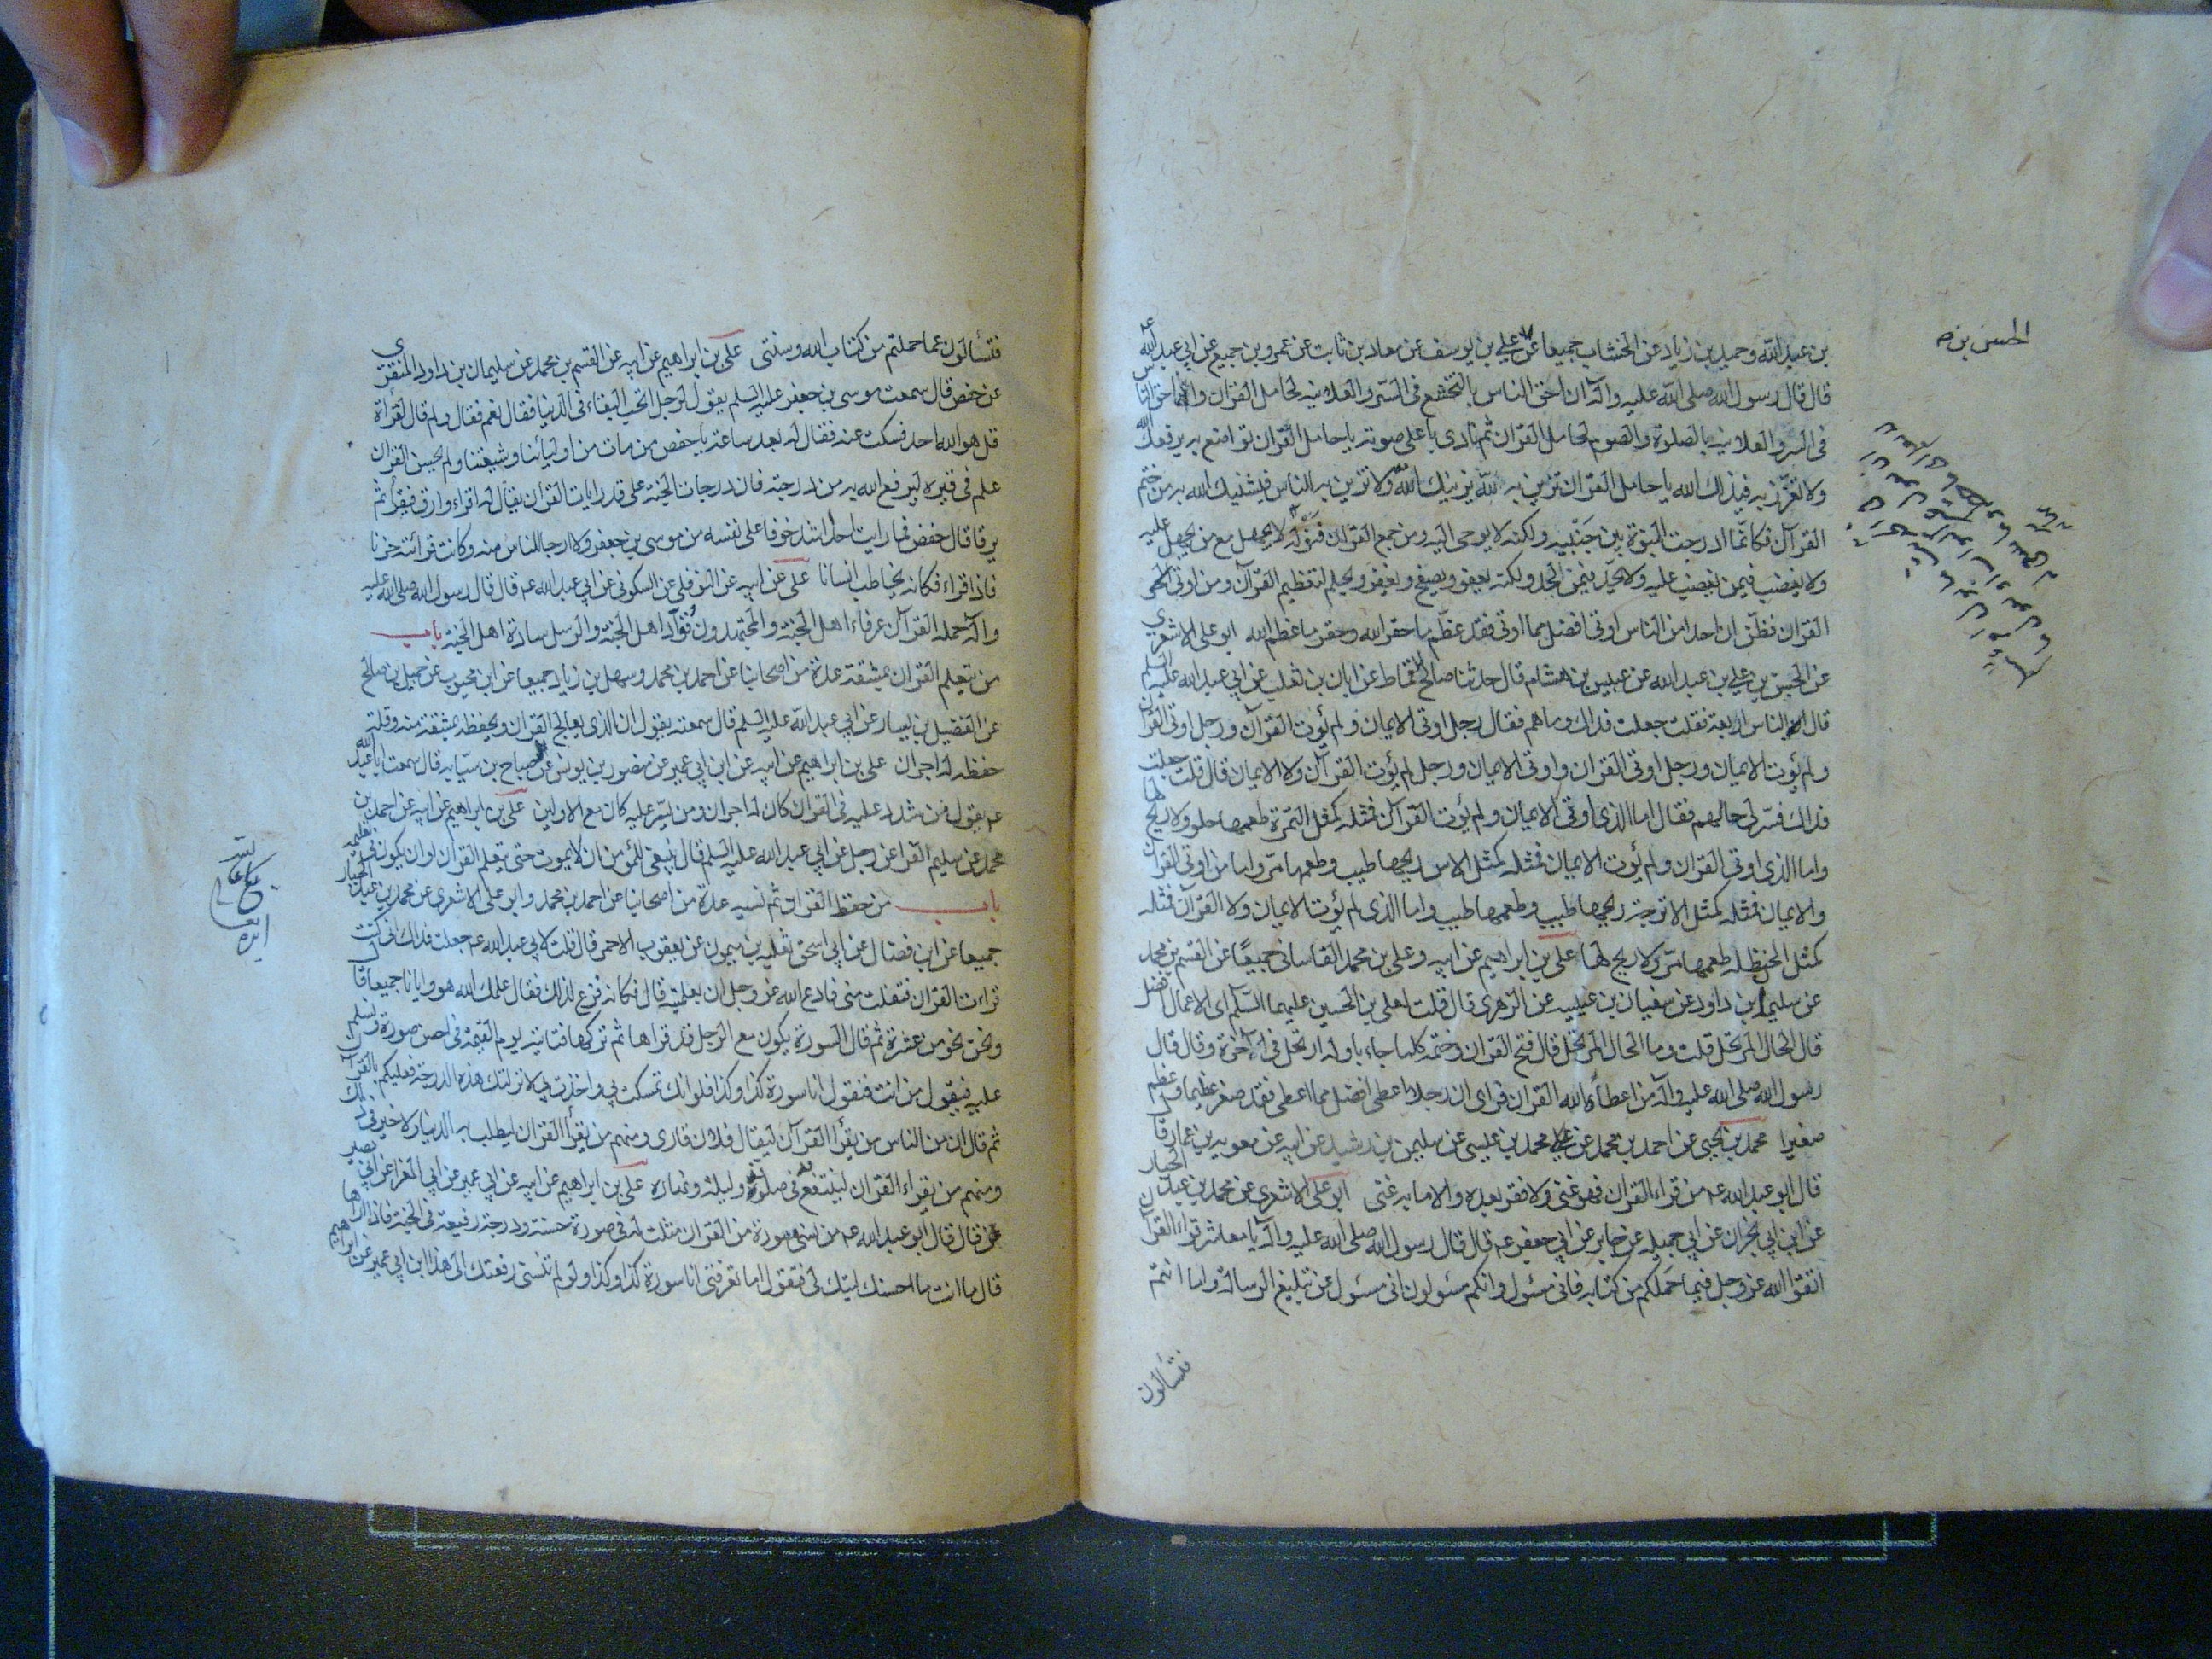 بن عبد الله وحميد بن زياد عن الخشاب جميعا عن علي بن يوسف عن معاد بن ثابت عن عمرو بن جميع عن ابي عبد الله ع
قال قال رسول الله صلى الله عليه وآله ان احق الناس بالتخشع في السر والعلانيه لحامل القران وان احق الناس
في السر والعلانيه بالصلوة والصوم لحامل القران ثم نادى باعلى صوته يا حامل القران تواضع به يرفعك الله
ولا تعزز به فيذلك الله يا حامل القران تزين به لله يزينك الله ولا تزين به للناس فيشنيك الله به من ختم
القرآن فكانما ادرجت النبوة بين جنبيه ولكنه لا يوحى اليه ومن جمع القران فنوله لا يجهل مع من يجهل عليه
ولا يغضب فيمن يغضب عليه ولا يحد فيمن يحد ولكنه يعفو ويصفح ويغفر ويحلم لتعظيم القرآن ومن اوتي
القران فظن ان احدا من الناس اوتي افضل مما اوتي فقد عظم ما حقر الله وحقر ما عظم الله ابو علي الاشعري
عن الحسن بن علي بن عبد الله عن عبيس بن هشام قال حدثنا صالح القماط عن ابان بن تغلب عن ابي عبد الله عليه السلم
قال الناس اربعة فقلت جعلت فداك وما هم فقال رجل اوتي الايمان ولم يؤت القرآن ورجل اوتي القران
ولم يؤت الايمان ورجل اوتي القران واوتي الايمان ورجل لم يؤت القرآن ولا الايمان قال قلت جعلت
فداك فسر لي حالهم فقال اما الذي اوتي الايمان ولم يؤت القرآن فمثله كمثل التمرة طعمها حلو ولا ريح لها
واما الذي اوتي القران ولم يؤت الايمان فمثله كمثل الاس ريحها طيب وطعمها مر واما من اوتي القران
والايمان فمثله كمثل الاترجة ريحها طيب وطعمها طيب واما الذي لم يؤت الايمان ولا القرآن فمثله
كمثل الحنظلة طعمها مر ولا ريح لها علي بن ابراهيم عن ابيه وعلي بن محمد القاساني جميعا عن القسم بن محمد
عن سليمان بن داود عن سفيان بن عيينه عن الزهري قال قلت لعلي بن الحسين عليهما السلم اي الاعمال افضل
قال الحال المرتحل قلت وما الحال المرتحل قال فتح القران وختمه كلما جاء باوله ارتحل في آخرة وقال قال
رسول الله صلى الله عليه وآله من اعطاه الله القران فراى ان رجلا اعطي افضل مما اعطي فقد صغر عظيما وعظم
صغيرا محمد بن يحيى عن احمد بن محمد عن محمد بن عيسى عن سليمن بن رشيد عن ابيه عن معويه بن عمار قال
قال ابو عبد الله ع من قراء القران فهو غني ولا فقر بعده والا ما به غنى ابو علي الاشعري عن محمد بن عبد الجبار
عن ابن ابي نجران عن ابي جميله عن جابر عن ابي جعفر ع قال قال رسول الله صلى الله عليه وآله يا معاشر قراء القرآن
اتقوا الله عز وجل فيما حملكم من كتابه فاني مسئول وانكم مسئولون اني مسئول عن تبليغ الرسالة واما انتم
فتسألون
فتسألون عما حملتم من كتاب الله وسنتي علي بن ابراهيم عن ابيه عن القسم بن محمد عن سليمان بن داود المنقري
عن حفص قال سمعت موسى بن جعفر عليه السلم يقول لرجل اتحب البقاء في الدنيا فقال نعم فقال ولم قال لقراءة
قل هو الله احد فسكت عنه فقال له بعد ساعة يا حفص من مات من اوليائنا وشيعتنا ولم يحسن القران
علم في قبره ليرفع الله به من درجته فان درجات الجنة على قدر ايات القران يقال له اقراء وارق فيقرأ ثم
يرقا قال حفص فما رايت احدا اشد خوفا على نفسه من موسى بن جعفر ولا ارجا للناس منه وكانت قرائته حزنا
فاذا قراء فكانه يخاطب انسانا علي عن ابيه عن النوفلي عن السكوني عن ابي عبد الله ع قال قال رسول الله صلى الله عليه
وآله حملة القرآن عرفاء اهل الجنة والمجتهدون قواد اهل الجنة والرسل سادة اهل الجنة باب
من يتعلم القران بمشقة عدة من اصحابنا عن احمد بن محمد وسهل بن زياد جميعا عن ابن محبوب عن جميل بن صالح
عن الفضيل بن يسار عن ابي عبد الله عليه السلم قال سمعته يقول ان الذي يعالج القران ويحفظه بمشقة منه وقلة
حفظه له اجران علي بن ابراهيم عن ابيه عن ابن ابي عمير عن منصور بن يونس عن صباح بن سيابه قال سمعت ابا عبد الله
ع يقول من شدد عليه في القران كان له اجران ومن يسر عليه كان مع الاولين علي بن ابراهيم عن ابيه عن احمد بن
محمد عن سليم الفرا عن رجل عن ابي عبد الله عليه السلم قال ينبغي للمؤمن ان لا يموت حتى يتعلم القران او ان يكون في تعليمه
باب من حفظ القران ثم نسيه عدة من اصحابنا عن احمد بن محمد وابو علي الاشعري عن محمد بن عبد الجبار
جميعا عن ابن فضال عن ابي اسحق ثعلبه بن ميمون عن يعقوب الاحمر قال قلت لابي عبد الله ع جعلت فداك اني كنت
قرات القران ففلت مني فادع الله عز وجل ان يعلمنيه قال فكانه فزع لذلك فقال علمك الله هو وايانا جميعا قال
ونحن نحو من عشرة ثم قال السورة يكون مع الرجل قد قراها ثم تركها فتاتيه يوم القيمة في احسن صورة وتسلم
عليه فيقول من انت فتقول انا سورة كذا وكذا فلو انك تمسكت بي واخذت بي لانزلتك هذه الدرجة فعليكم بالقرآن
ثم قال ان من الناس من يقرأ القرآن ليقال فلان قارى ومنهم من يقرأ القران ليطلب به الدنيا ولا خير في ذلك
ومنهم من يقراء القران لينتفع في صلوته وليله ونهاره علي بن ابراهيم عن ابيه عن ابي عمير عن ابي المغرا عن ابي بصير
قال قال ابو عبد الله ع من نسي سورة من القران مثلت له في صورة حسنة ودرجة رفيعة في الجنة فاذا راها
قال ما انت ما احسنك ليتك لي فتقول اما تعرفني انا سورة كذا وكذا ولو لم تنسني رفعتك الى هذا ابن ابي عمير عن ابراهيم